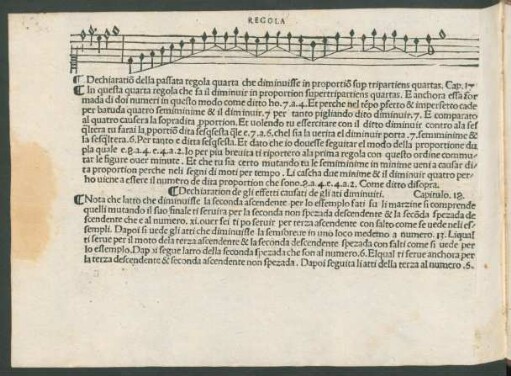 REGOLA
¶ Dechiaratiõ della passata regola quarta che diminuisse in proportiõ sup tripartiens quartas. Cap. 17
¶ In questa quarta regola che fa il diminuir in proportion supertripartiens quartas. E anchora essa for
mada di doi numeri in questo modo come ditto ho. 7. a. 4. Et perche nel tẽpo pferto & imperfetto cade
per batuda quatro semiminime & il diminuir. 7. per tanto pigliando dito diminuir. 7. E comparato
al quatro causera la sopradita pportion. Et uolendo tu essercitare con il ditto diminuir contro ala sesq̃
q̃ltera tu farai la pportiõ dita sesq̃sesta q̃le e. 7. a. 6. chel sia la uerita el diminuir porta .7. semiminime &
la sesq̃ltera. 6. Per tanto e dita sesq̃sesta. Et dato che io douesse seguitar el modo della proportione du
pla quale e. 8. a. 4. e. 4. a. 2. Io per piu breuita ti riportero ala prima regola con questo ordine commu
tar le figure ouer minute. Et che tu sia certo mutando tu le semiminime in minime ueni a causar di
ta proportion perche neli segni di moti per tempo. Li cascha due minime & il diminuir quatro per
ho uiene a essere il numero de dita proportion che sono. 8. a. 4. e. 4. a. 2. Come ditto disopra.
¶ Dechiaration de gli effetti causati de gli atti diminuiti. Capitolo. 18.
¶ Nota che latto che diminuisse la seconda ascendente per lo essemplo fati su li margine si comprende
quelli mutando il suo finale ti seruira per la seconda non spezada descendente & la secõda spezada de
scendente che e al numero. xi. ouer se ti po seruir per terza ascendente con salto come se uede neli es-
sempli. Dapoi si uede gli atti che diminuisse la semibreue in uno loco medemo a numero. 13. Liqual
ti serue per il moto dela terza ascendente & la seconda descendente spezada con salti come si uede per
lo essemplo. Dap xi segue latro della seconda spezada che son al numero. 6. Elqual ti serue anchora per
la terza descendente & seconda ascendente non spezada. Dapoi seguita li atti della terza al numero .6.